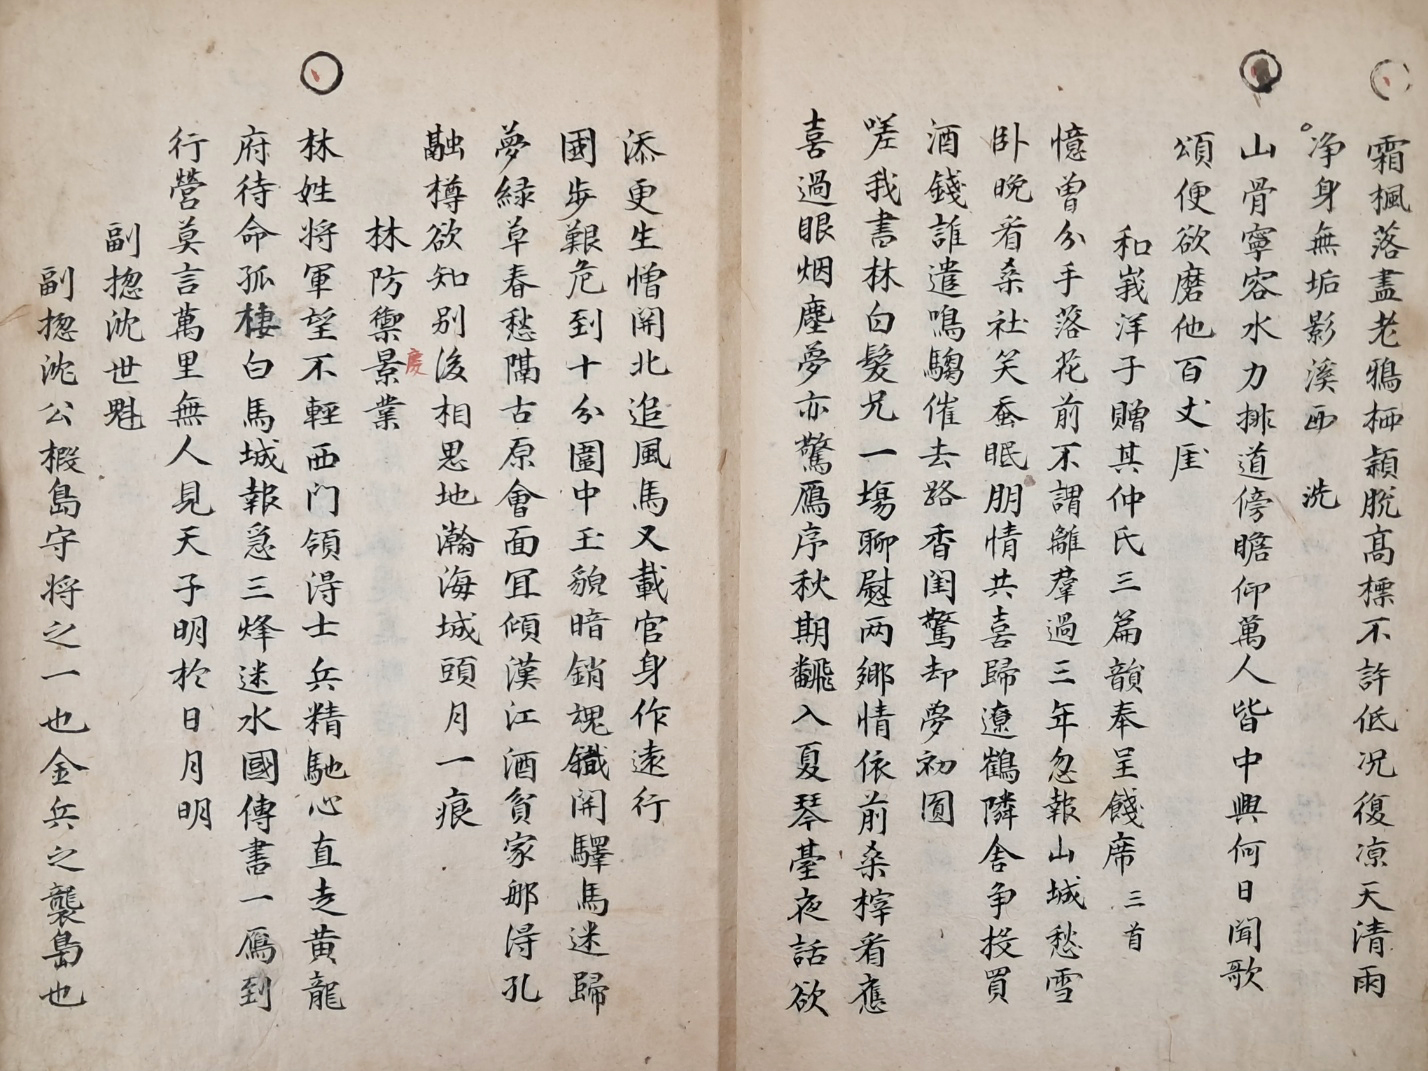 霜楓落盡老鴉栖穎脫高標不許低況復凉天清雨
洗
净身無垢影溪西
山骨寧容水力排道傍瞻仰萬人皆中興何日聞歌
頌便欲磨他百丈厓
和峩洋子贈其仲氏三篇韻奉呈餞席 三首
憶曾分手落花前不謂離羣過三年忽報山城愁雪
卧晚看桑社笑蚕眠朋情共喜歸遼鶴隣舍争投買
酒錢誰遣鳴騶催去路香閨驚却夢初圓
嗟我書林白髮兄一塲聊慰两鄉情依前桑梓看應
喜過眼烟塵夢亦驚鴈序秋期飜入夏琴臺夜話欲
添更生憎開北追風馬又載官身作遠行
國步艱危到十分圍中玉貌暗銷魂鐵開驛馬迷歸
夢緑草春愁隔古原會面冝傾漢江酒貧家那得孔
融樽欲知别後相思地瀚海城頭月一痕
林防禦景業
慶
林姓将軍望不輕西门領淂士兵精馳心直走黄龍
府待命孤棲白馬城報急三烽迷水國傳書一鴈到
行營莫言萬里無人見天子明於日月明
副揔沈世魁
副揔沈公椵島守将之一也金兵之襲島也